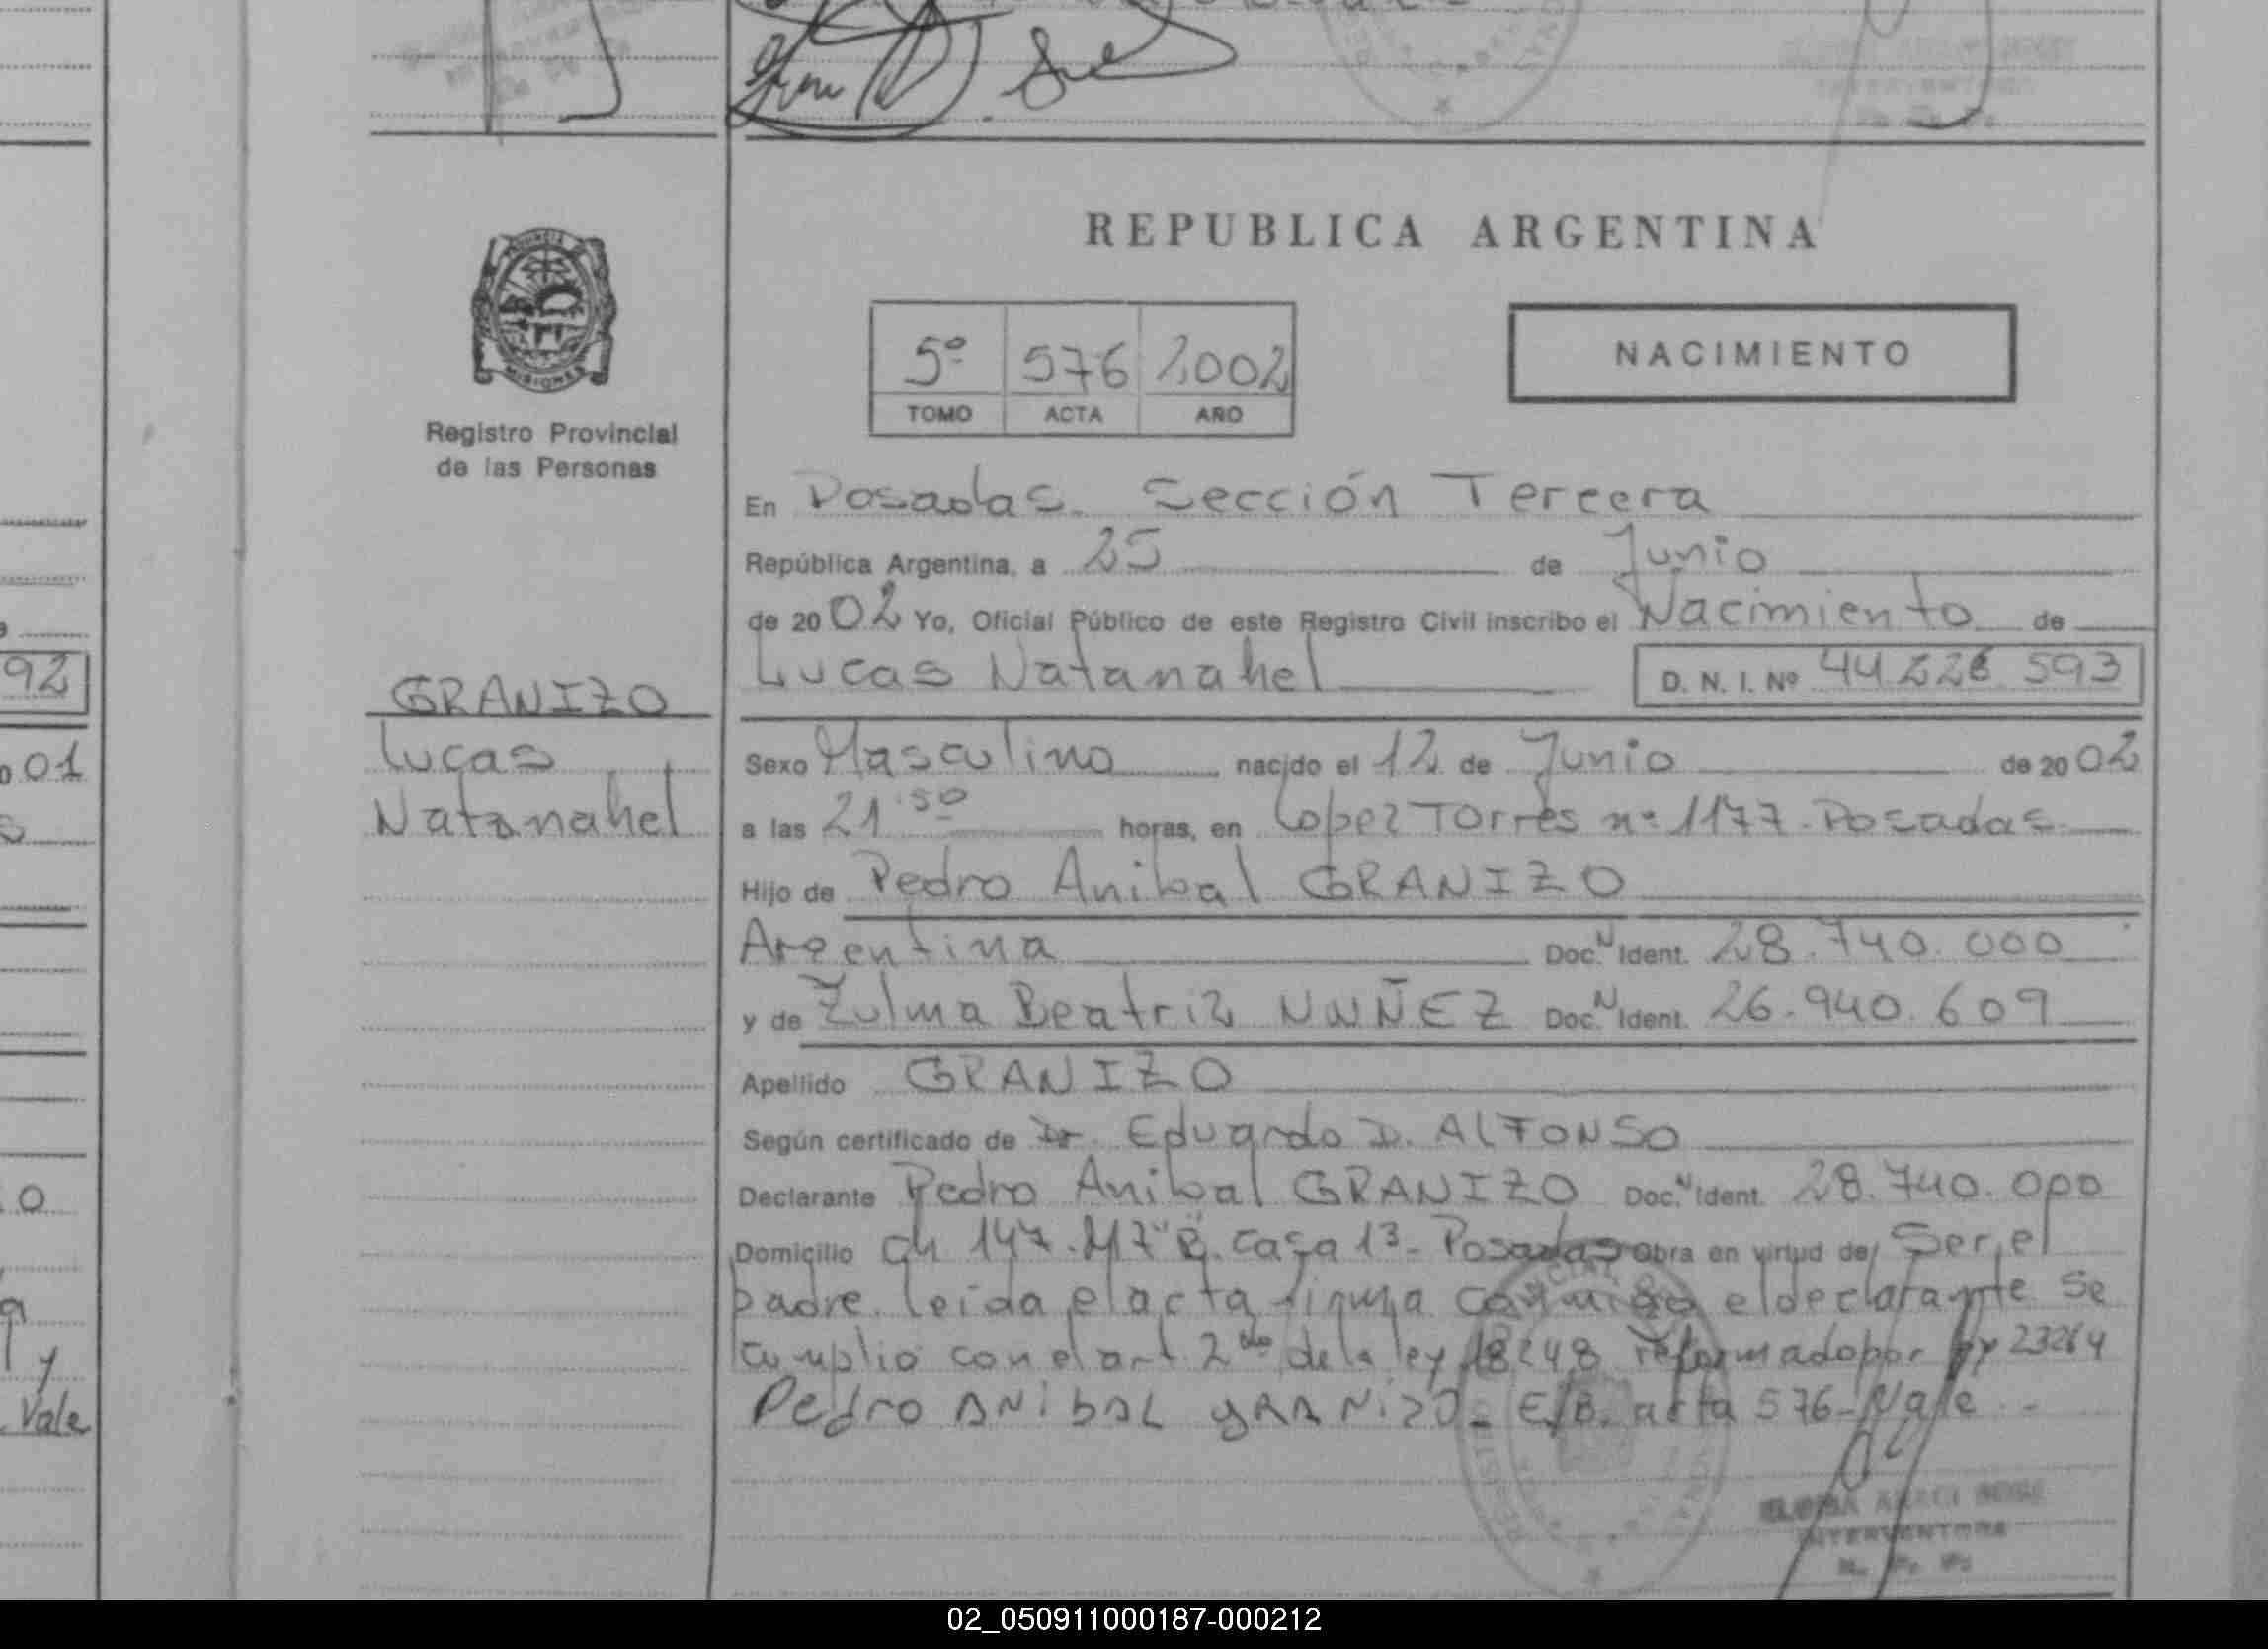 REPUBLICA ARGENTINA
MISIONES
Registro Provincial
de las Personas
5º 576 2002
TOMO ACTA AÑO
NACIMIENTO
En Posadas. Sección Tercera
República Argentina, a 25 de Junio
de 2002 Yo, Oficial Público de este Registro Civil inscribo el Nacimiento de
Lucas Natanahel D. N. I. Nº 44.226.593
92
GRANIZO
Lucas
Natanahel
01
Sexo Masculino nacido el 12 de Junio de 2002
a las 21:50 horas, en Lopez Torres nº 1177. Posadas
Hijo de Pedro Anibal GRANIZO
Argentina Doc. N Ident. 28.740.000
y de Zulma Beatriz NUÑEZ Doc. N Ident. 26.940.609
Apellido GRANIZO
Según certificado de Dr. Eduardo D. ALFONSO
Declarante Pedro Anibal GRANIZO Doc. N Ident. 28.740.000
Domicilio ch 147. M7 "B". casa 13- Posadas obra en virtud de Ser el
padre. leida el acta firma conmigo el declarante. Se
cumplio con el art 2do de la ley 18248 reformado por ley 23264
Pedro ANIBAL GRANIZO. E/B. acta 576-Vale.-
0
y
Vale
INTERVENTORA
R. P. P.
02_050911000187-000212